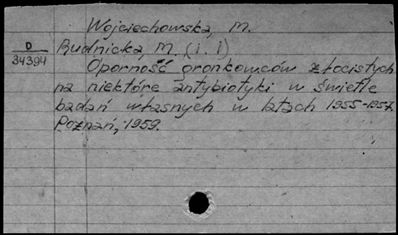 Wojciechowska, M.
D
34394
Rudnicka, M. (i. i)
Oporność gronkowców złocistych
na niektóre antybiotyki w świetle
badań własnych w latach 1955-1957.
Poznań, 1959.